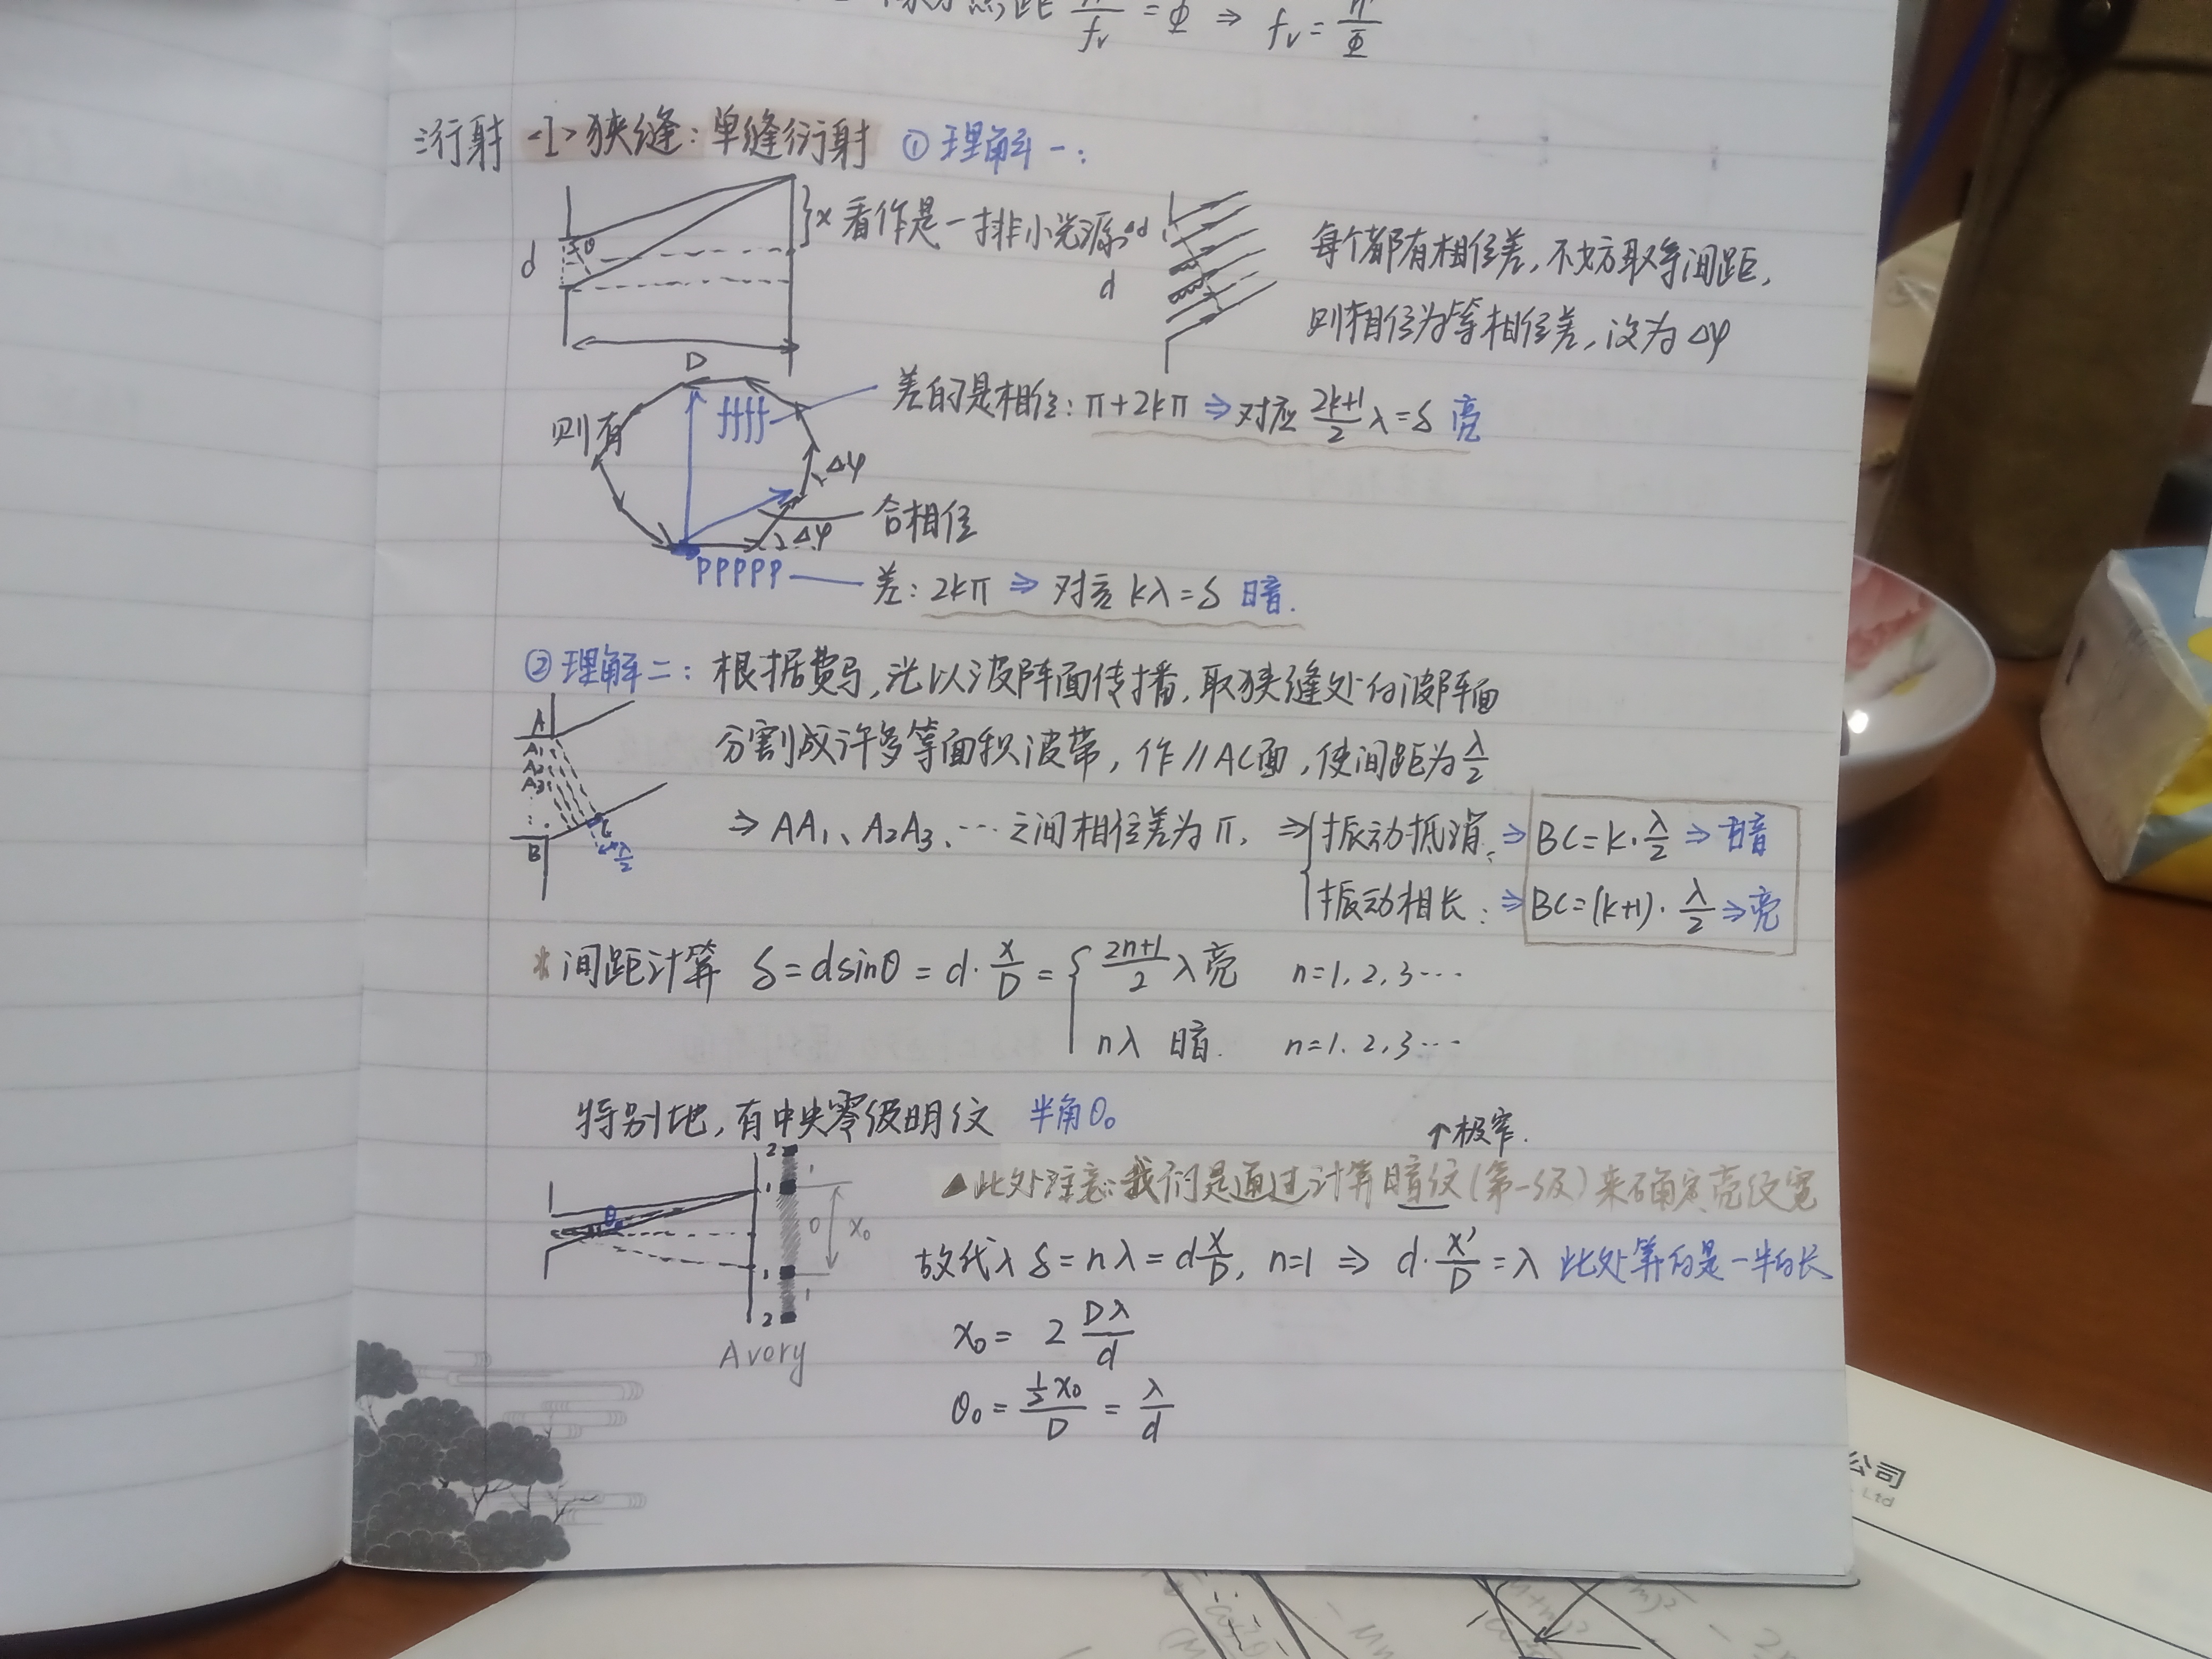 距 n/f_v = Φ ⇒ f_v = n'/Φ
衍射 <1> 狭缝：单缝衍射 ① 理解一：
d θ x 看作是一排小光源 Δd d 每个都有相位差，不妨取等间距，
则相位为等相位差，设为 Δφ
D
则有 ffff 差的是相位：π+2kπ ⇒ 对应 (2k+1)/2 λ = δ 亮
Δφ
Δφ 合相位
PPPPP 差：2kπ ⇒ 对应 kλ = δ 暗.
② 理解二：根据费马，光以波阵面传播，取狭缝处的波阵面
分割成许多等面积波带，作 // AC面，使间距为 λ/2
A A₁ A₂ A₃ ⋮ B C λ/2
⇒ AA₁、A₂A₃、… 之间相位差为 π, ⇒ { 振动抵消 ⇒ BC = k·λ/2 ⇒ 暗
振动相长：⇒ BC = (k+1)·λ/2 ⇒ 亮
* 间距计算 δ = dsinθ = d·x/D = { (2n+1)/2 λ 亮 n=1,2,3…
nλ 暗. n=1.2,3…
特别地，有中央零级明纹 半角θ₀
↑极窄.
▲此处注意：我们是通过计算暗纹(第一级)来确定亮纹宽
2 1 0 1 2 1 1 x₀ θ₀
故代入 δ = nλ = d x/D, n=1 ⇒ d·x'/D = λ 此处算的是一半的长
x₀ = 2 Dλ/d
Avery
θ₀ = ½x₀/D = λ/d
公司
Ltd